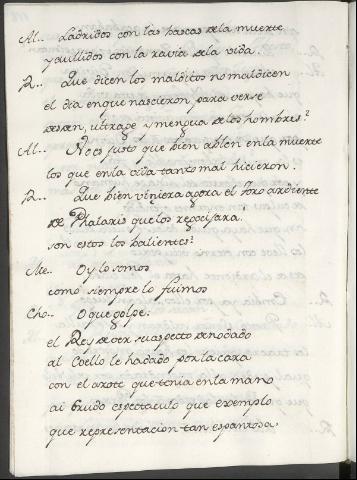 Al.. Ladridos con las bascas de la muerte
y aullidos con la ravia de la vida.
R.. Que dicen los malditos no maldicen
el dia en que nascieron, para verse
ser en, ultrage y mengua de los hombres?
Al.. No es justo que bien ablen en la muerte
los que en la vida tanto mal hicieron.
R.. Que bien viniera agora el Toro ardiente
de Phalaris que los regocijara.
son estos los balientes?
Me.. Oy lo somos
como siempre lo fuimos
Cho.. O que golpe:
el Rey de ver su aspecto denodado
al Coello le ha dado por la cara
con el azote que tenia en la mano
ai crudo espectaculo que exemplo
que representacion tan espantosa.